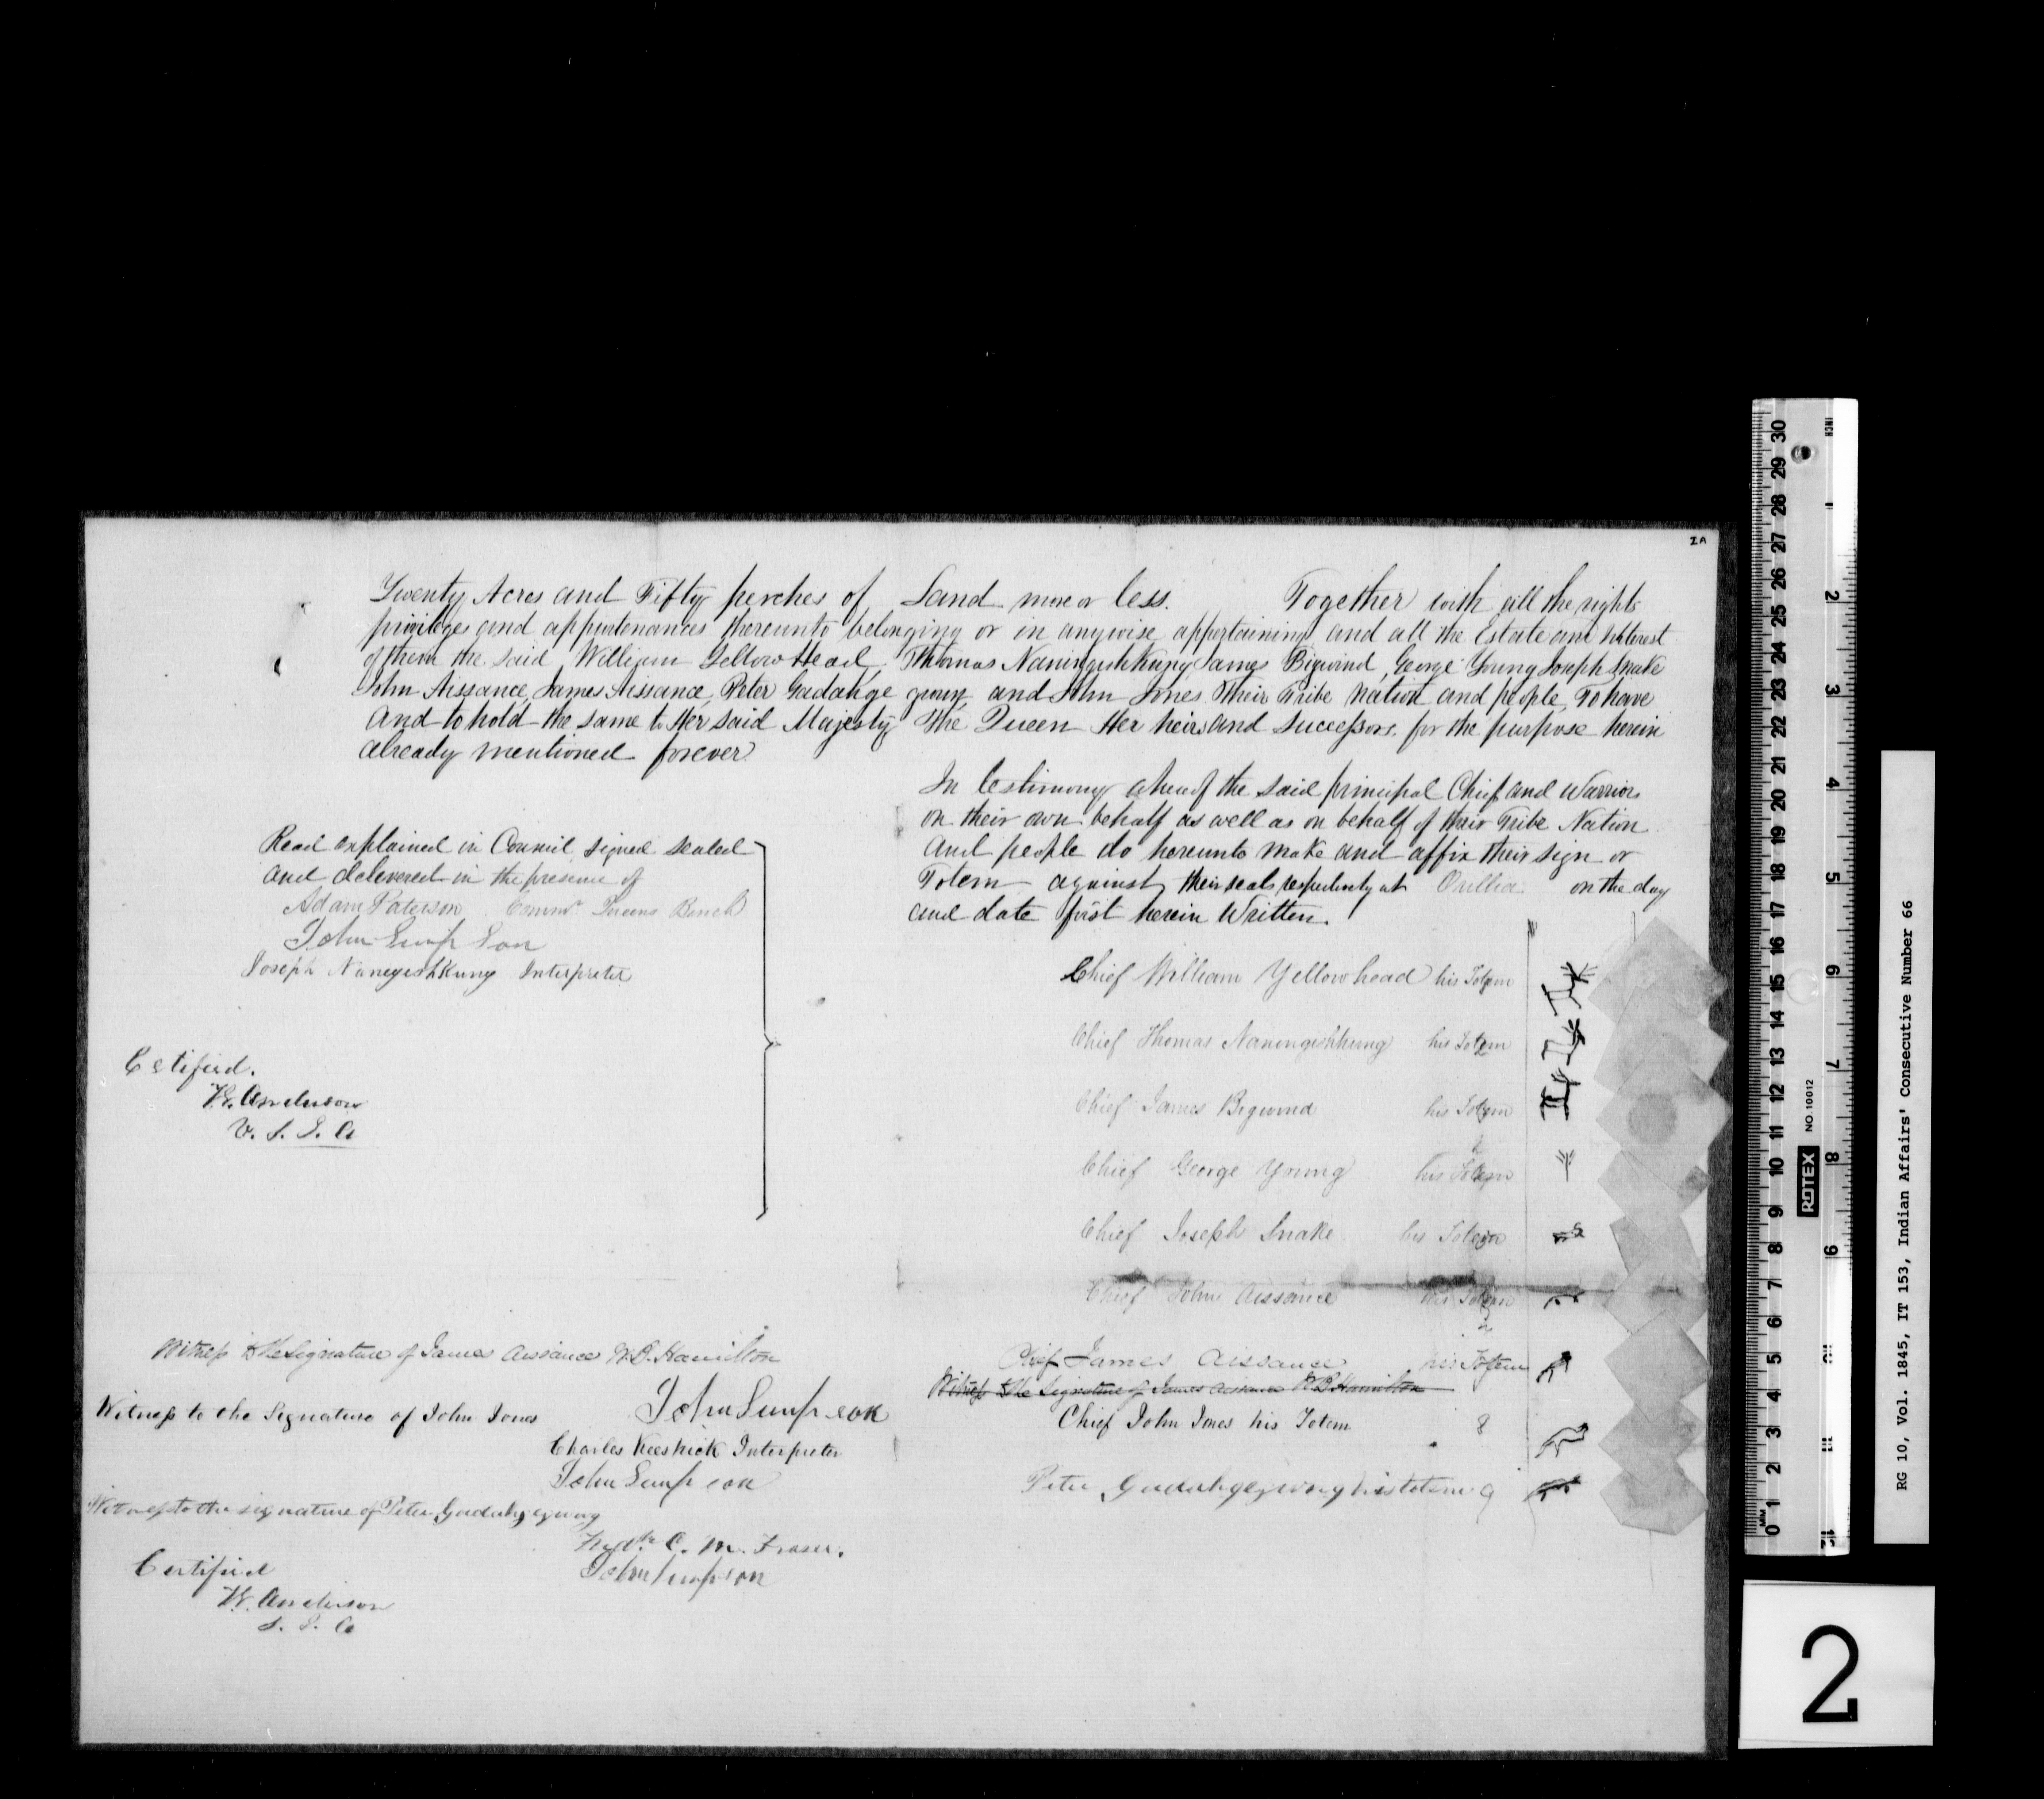 IA
Twenty Acres and Fifty perches of Land more or less. Together with all the rights
privileges and appurtenances thereunto belonging or in anywise appertaining and all the Estate and Interest
of them the said William Yellow Head, Thomas Naningishkung, James Bigwind, George Young Joseph Snake
John Aissance, James Aissance, Peter Gadahge gwun, and John Jones their Tribe Nation and people, To have
And to hold the same to Her said Majesty the Queen Her heirs and Successors for the purpose herein
already mentioned forever
In testimony whereof the said principal Chief and Warriors
on their own behalf as well as on behalf of their Tribe Nation
And people do hereunto make and affix their sign or
Totem against their seals respectively at Orillia on the day
and date first herein Written.
Read explained in Council signed sealed
and delivered in the presence of
Adam Paterson Commr Queens Bench
John Simpson
Joseph Nanegishkung Interpreter
Certified.
W. Anderson
V. S. I. A
Chief William Yellowhead his Totem
Chief Thomas Naningishkung his Totem
Chief James Bigwind his Totem
Chief George Young his Totem
Chief Joseph Snake his Totem
Chief John Aissance his Totem
Witness to the Signature of James Aissance W.B. Hamilton
Chief James Aissance his Totem
Witness to the Signature of James Aissance W B Hamilton
Witness to the Signature of John Jones John Simpson
Chief John Jones his Totem 8
Charles Keeshick Interpreter
John Simpson
Peter Gudahgegwong his totem 9
Witness to the signature of Peter Gudahgegwung
C. M. Fraser.
John Simpson
Certified
W. Anderson
S. I. A
RG 10, Vol. 1845, IT 153, Indian Affairs' Consecutive Number 66
ROTEX NO 10012
INCH
2 3 4 5 6 7 8 9
30 29 28 27 26 25 24 23 22 21 20 19 18 17 16 15 14 13 12 11 10 9 8 7 6 5 4 3 2 1 0
MM
2